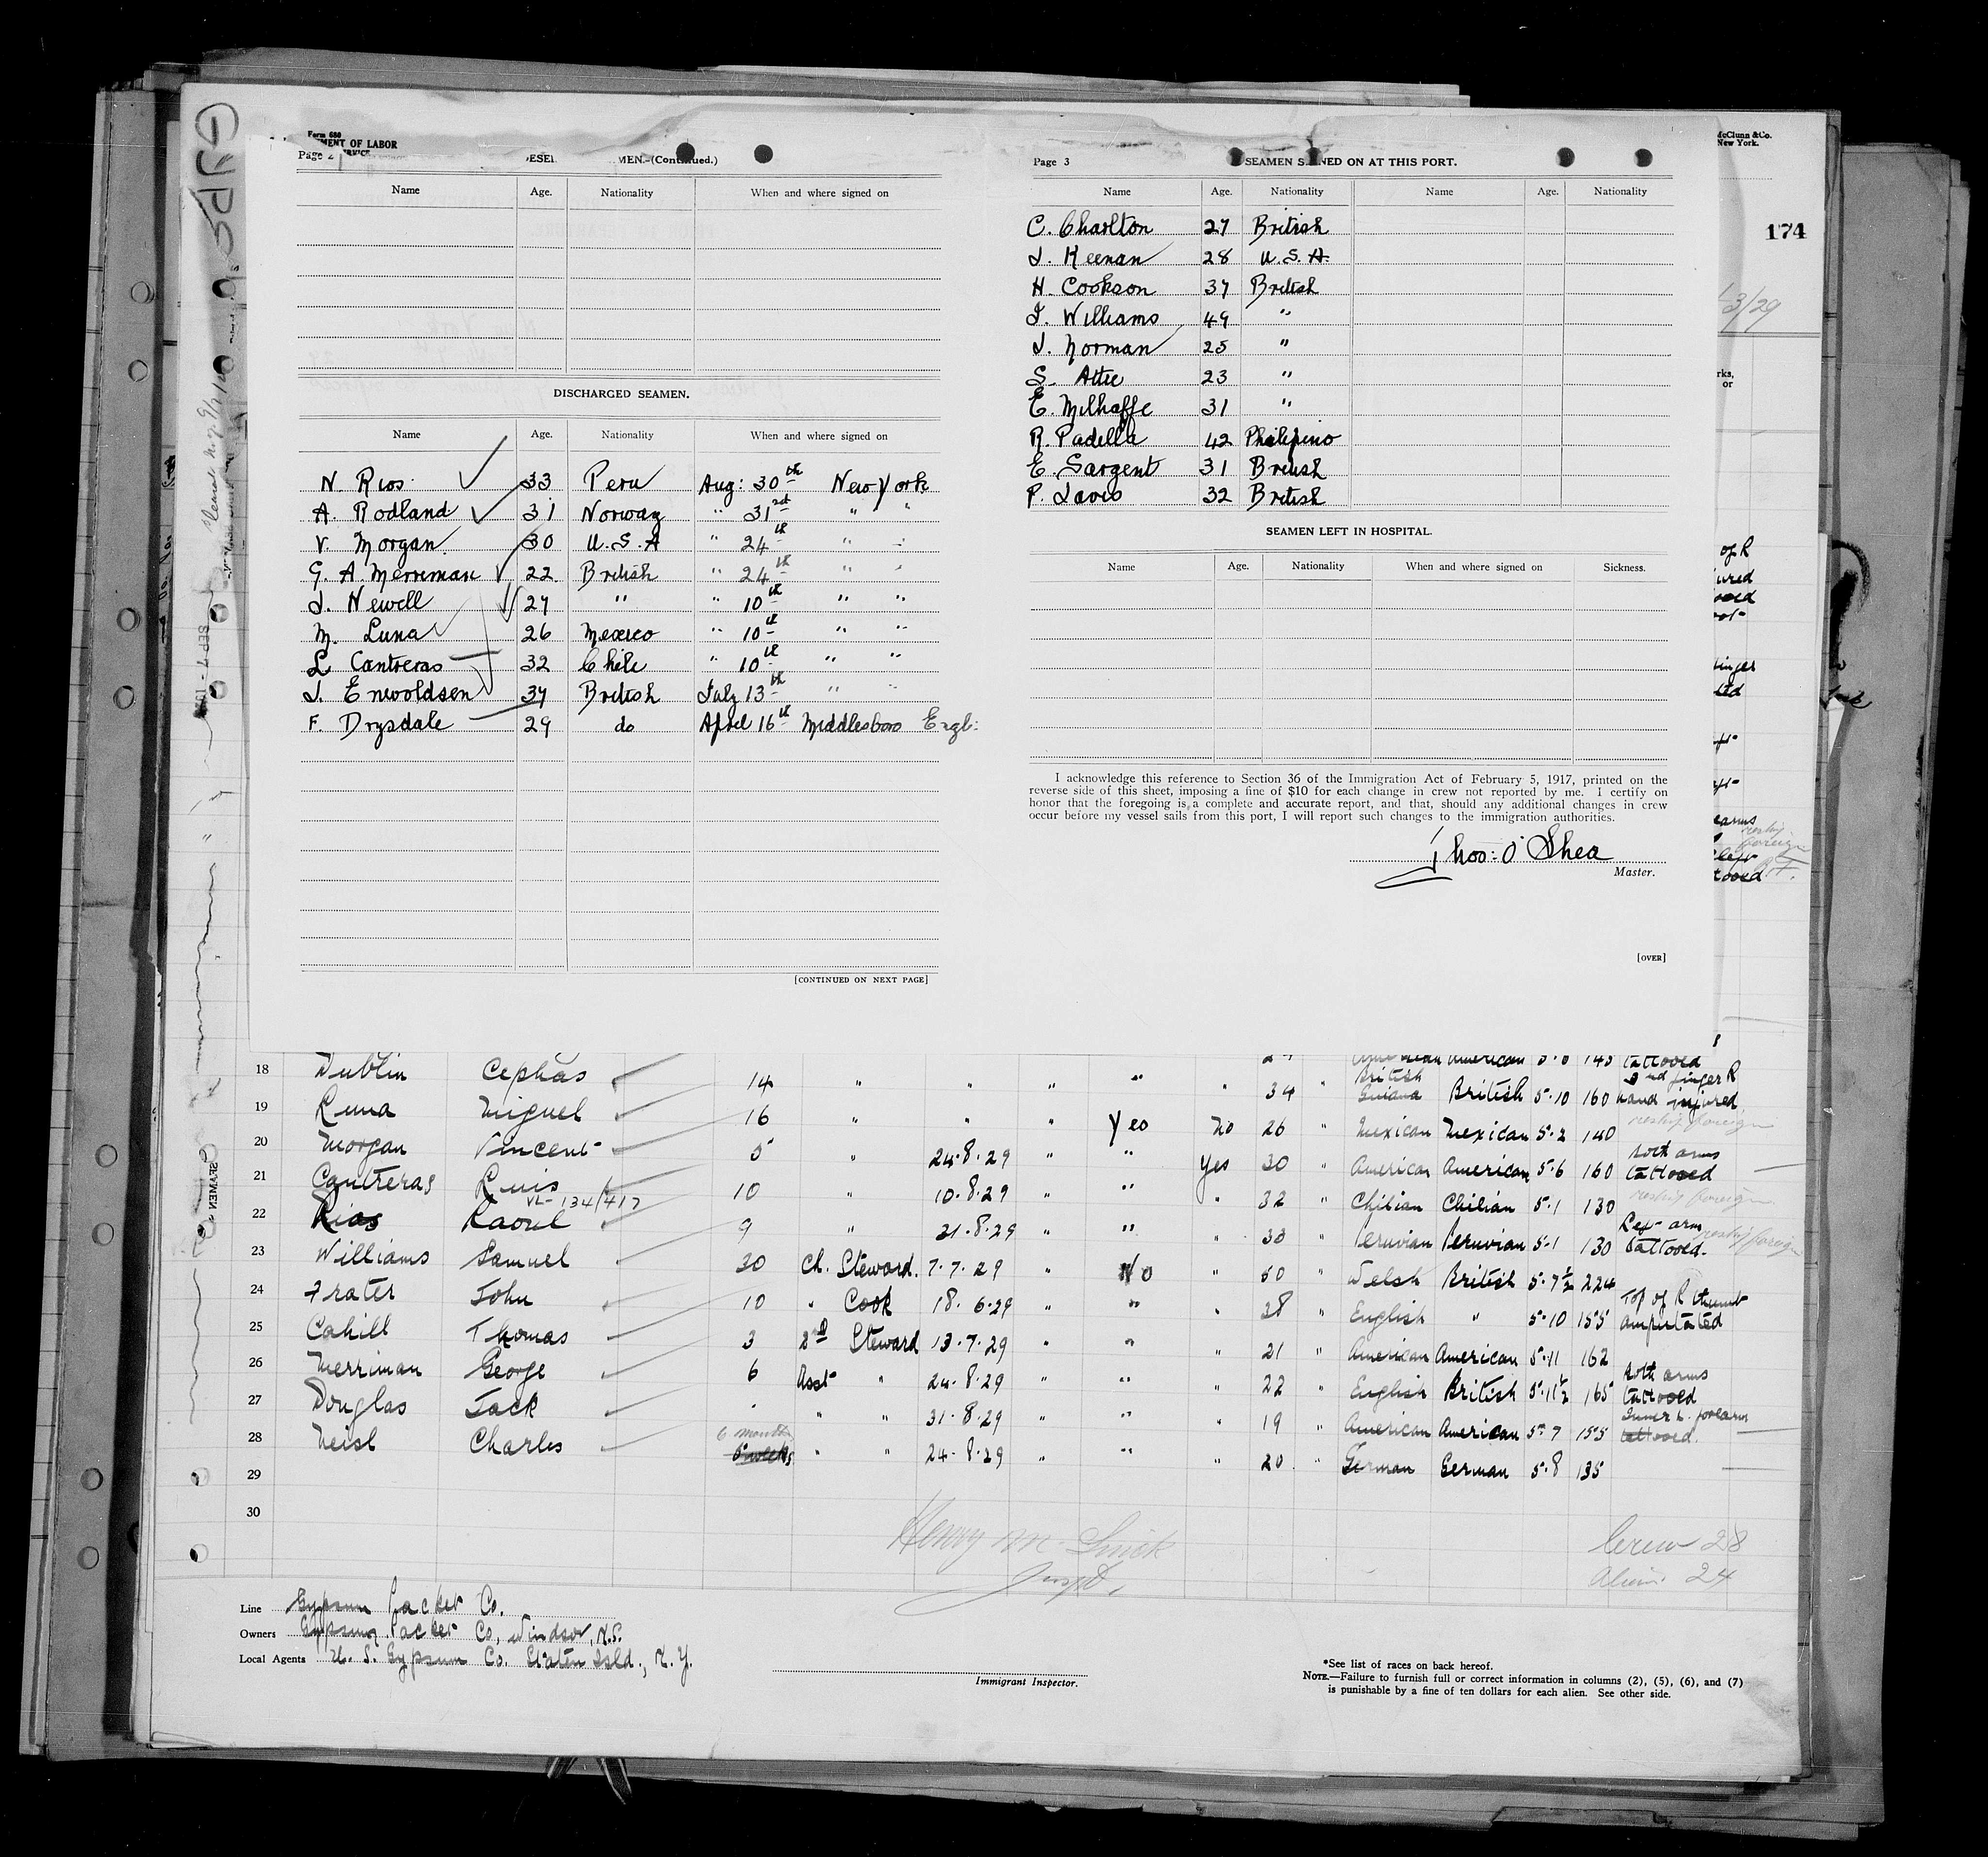 Form 680
MENT OF LABOR
Page 2
MEN.—(Continued.)
Name Age. Nationality When and where signed on
DISCHARGED SEAMEN.
Name Age. Nationality When and where signed on
N. Rios 33 Peru Aug: 30th New York
A. Rodland 31 Norway " 31st " "
V. Morgan 30 U.S.A " 24th " "
G. A. Merriman 22 British " 24th " "
J. Newell 27 " " 10th " "
M. Luna 26 Mexico " 10th " "
L Contreras 32 Chile " 10th " "
J. Enwoldsen 37 British July 13th " "
F. Drysdale 29 do April 16th Middlesboro Engl:
[CONTINUED ON NEXT PAGE]
Page 3 SEAMEN SIGNED ON AT THIS PORT.
Name Age. Nationality Name Age. Nationality
C. Charlton 27 British
J. Keenan 28 U.S.A.
H. Cookson 37 British
J. Williams 49 "
J. Norman 25 "
S. Attic 23 "
E. Milhaffe 31 "
R. Padella 42 Philipino
E. Sargent 31 British
P. Davis 32 British
SEAMEN LEFT IN HOSPITAL.
Name Age. Nationality When and where signed on Sickness.
I acknowledge this reference to Section 36 of the Immigration Act of February 5, 1917, printed on the
reverse side of this sheet, imposing a fine of $10 for each change in crew not reported by me. I certify on
honor that the foregoing is a complete and accurate report, and that, should any additional changes in crew
occur before my vessel sails from this port, I will report such changes to the immigration authorities.
Thos: O'Shea
Master.
[OVER]
McClunn & Co.
New York.
174
3/29
18 Dublin Cephas 14 " " " " " 34 " British Guiana British 5-10 160 2nd finger R hand injured
19 Luna Miguel 16 " " " Yes No 26 " Mexican Mexican 5-2 140
20 Morgan Vincent 5 " 24-8-29 " " Yes 30 " American American 5-6 160 both arms tattooed
21 Contreras Luis 10 " 10-8-29 " " " 32 " Chilian Chilian 5-1 130
VL-134/417
22 Rios Raoul 9 " 31-8-29 " " " 33 " Peruvian Peruvian 5-1 130 Left arm tattooed.
23 Williams Samuel 30 Ch. Steward. 7-7-29 " No " 60 " Welsh British 5-7½ 224
24 Frater John 10 " Cook 18-6-29 " " " 38 " English " 5-10 155 Top of R thumb amputated
25 Cahill Thomas 3 2nd Steward 13-7-29 " " " 21 " American American 5-11 162
26 Merriman George 6 Asst " 24-8-29 " " " 22 " English British 5-11½ 165 both arms tattooed
27 Douglas Jack " " " 31-8-29 " " " 19 " American American 5-7 155 Inner L. forearm tattooed.
28 Neisl Charles 6 months 5 weeks " " 24-8-29 " " " 20 " German German 5-8 135
29
30
Henry M.
Insp.
Crew 28
Alien 24
Line Gypsum Packet Co.
Owners Gypsum Packet Co, Windsor, N.S.
Local Agents U. S. Gypsum Co. Staten Isld., N.Y.
Immigrant Inspector.
*See list of races on back hereof.
NOTE.—Failure to furnish full or correct information in columns (2), (5), (6), and (7)
is punishable by a fine of ten dollars for each alien. See other side.